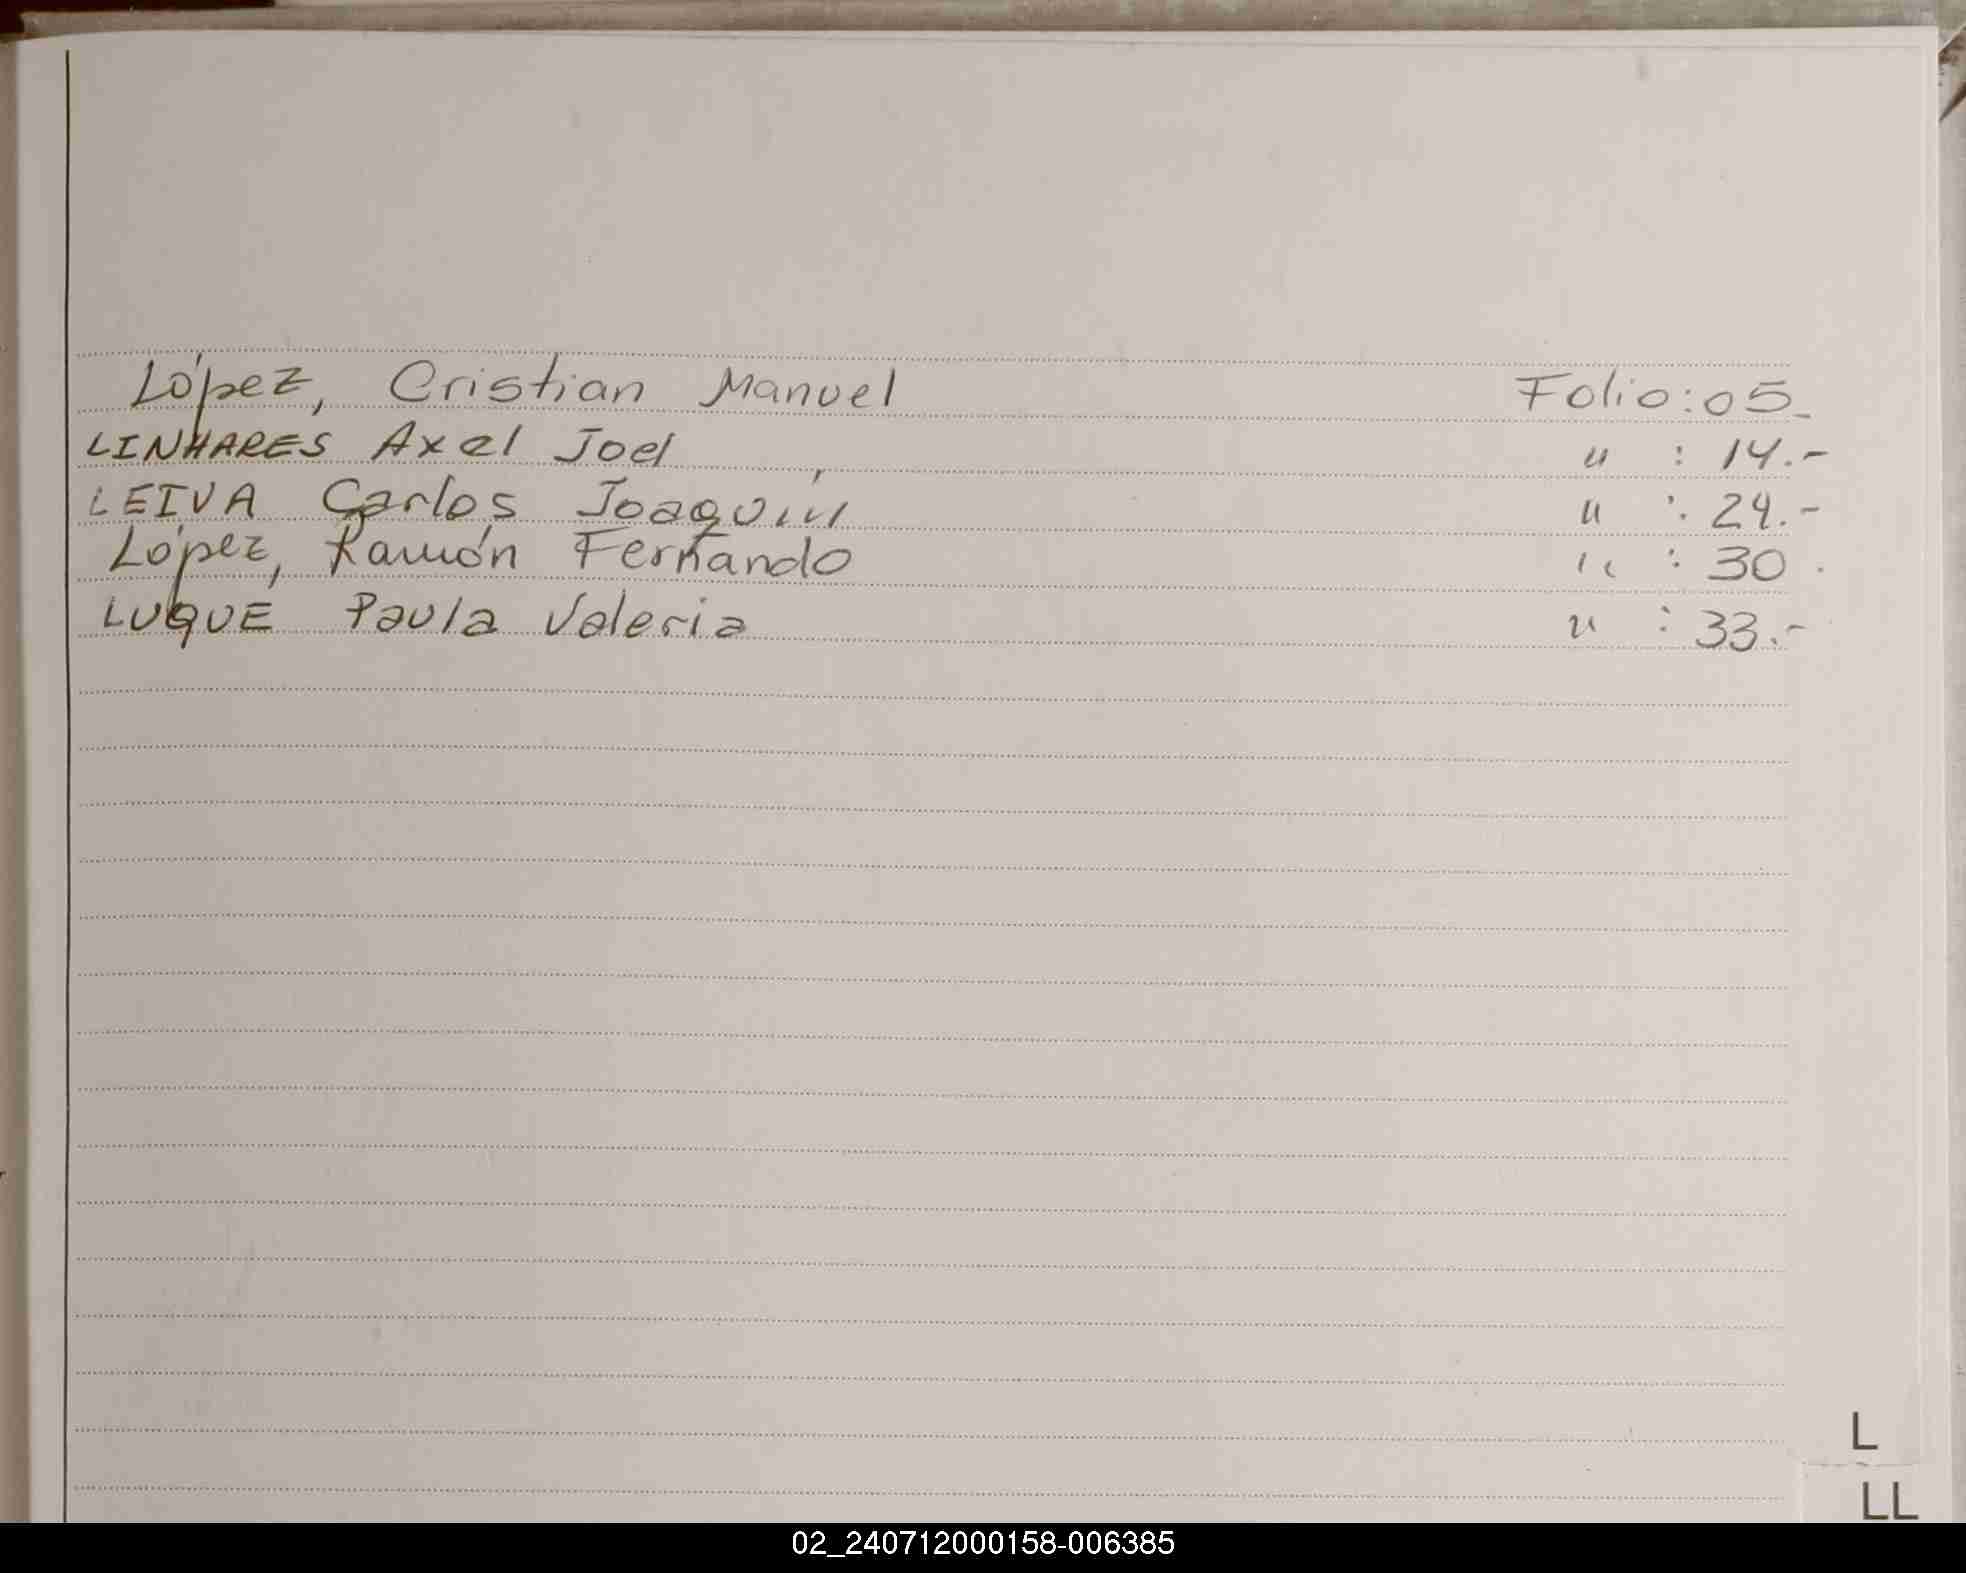 López, Cristian Manuel Folio: 05_
LINHARES Axel Joel " : 14.-
LEIVA Carlos Joaquín " : 24.-
López, Ramón Fernando " : 30.
LUQUE Paula Valeria " : 33.-
L
LL
02_240712000158-006385